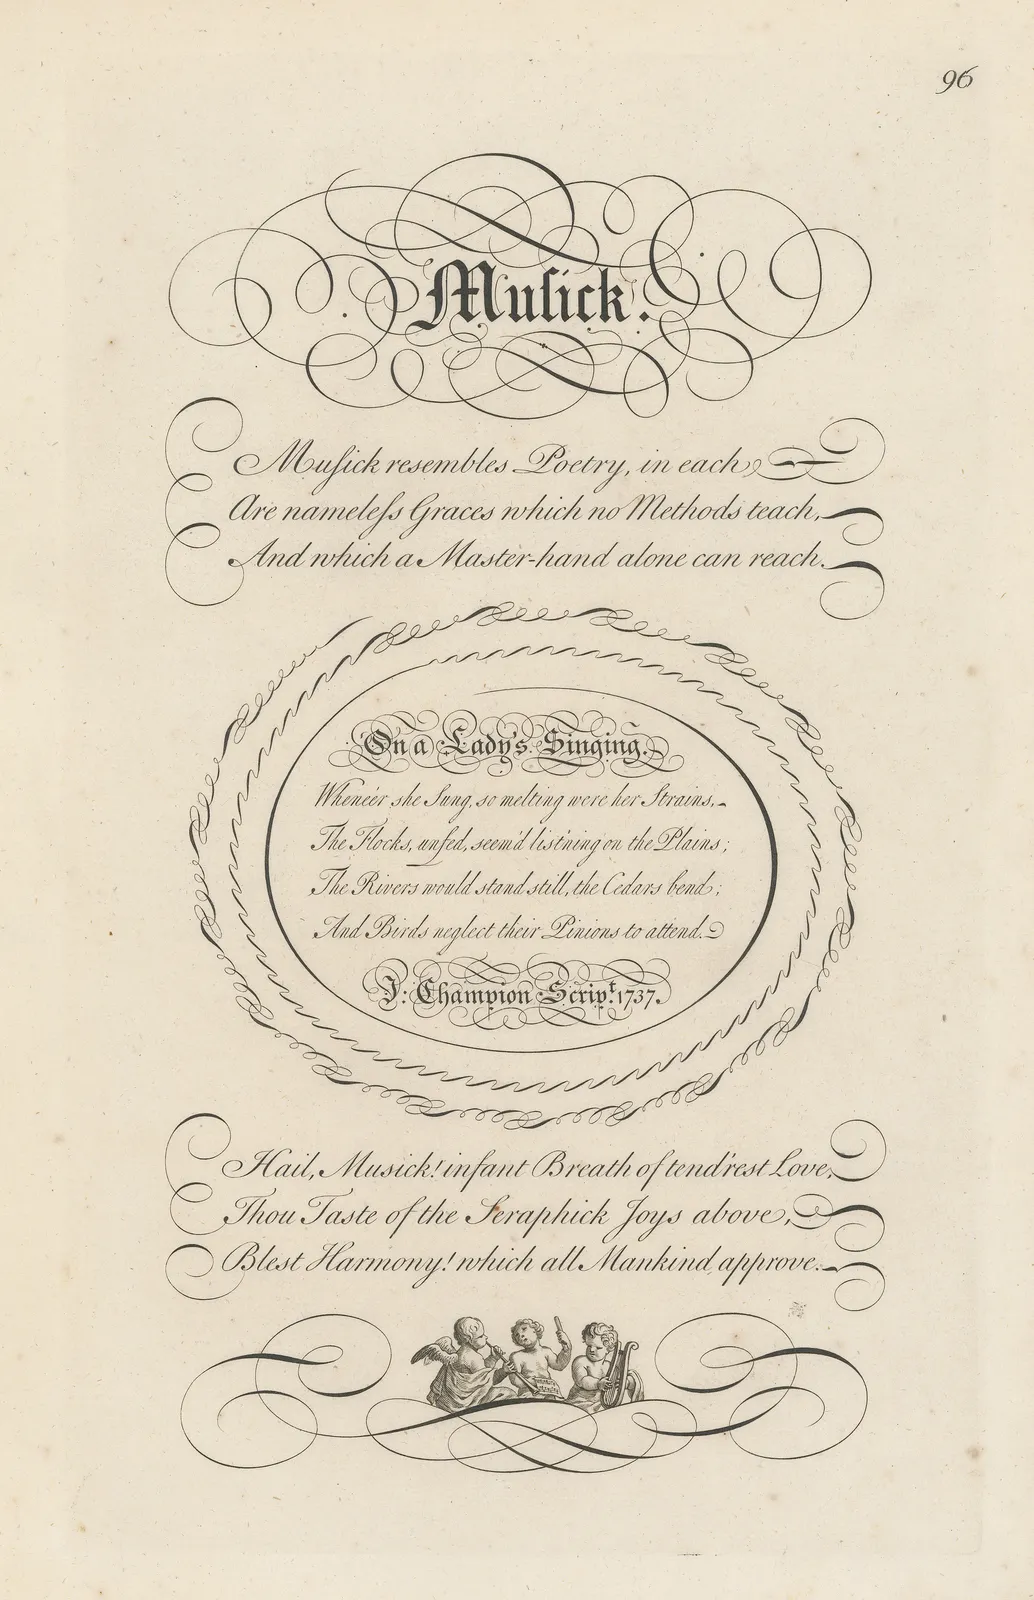 96
Musick.
Musick resembles Poetry, in each,
Are nameless Graces which no Methods teach,
And which a Master-hand alone can reach.
On a Lady's Singing.
Whene'er she Sung, so melting were her Strains,
The Flocks, unfed, seem'd list'ning on the Plains;
The Rivers would stand still, the Cedars bend;
And Birds neglect their Pinions to attend.
J: Champion Scrip.t 1737.
Hail, Musick! infant Breath of tend'rest Love,
Thou Taste of the Seraphick Joys above,
Blest Harmony! which all Mankind approve.